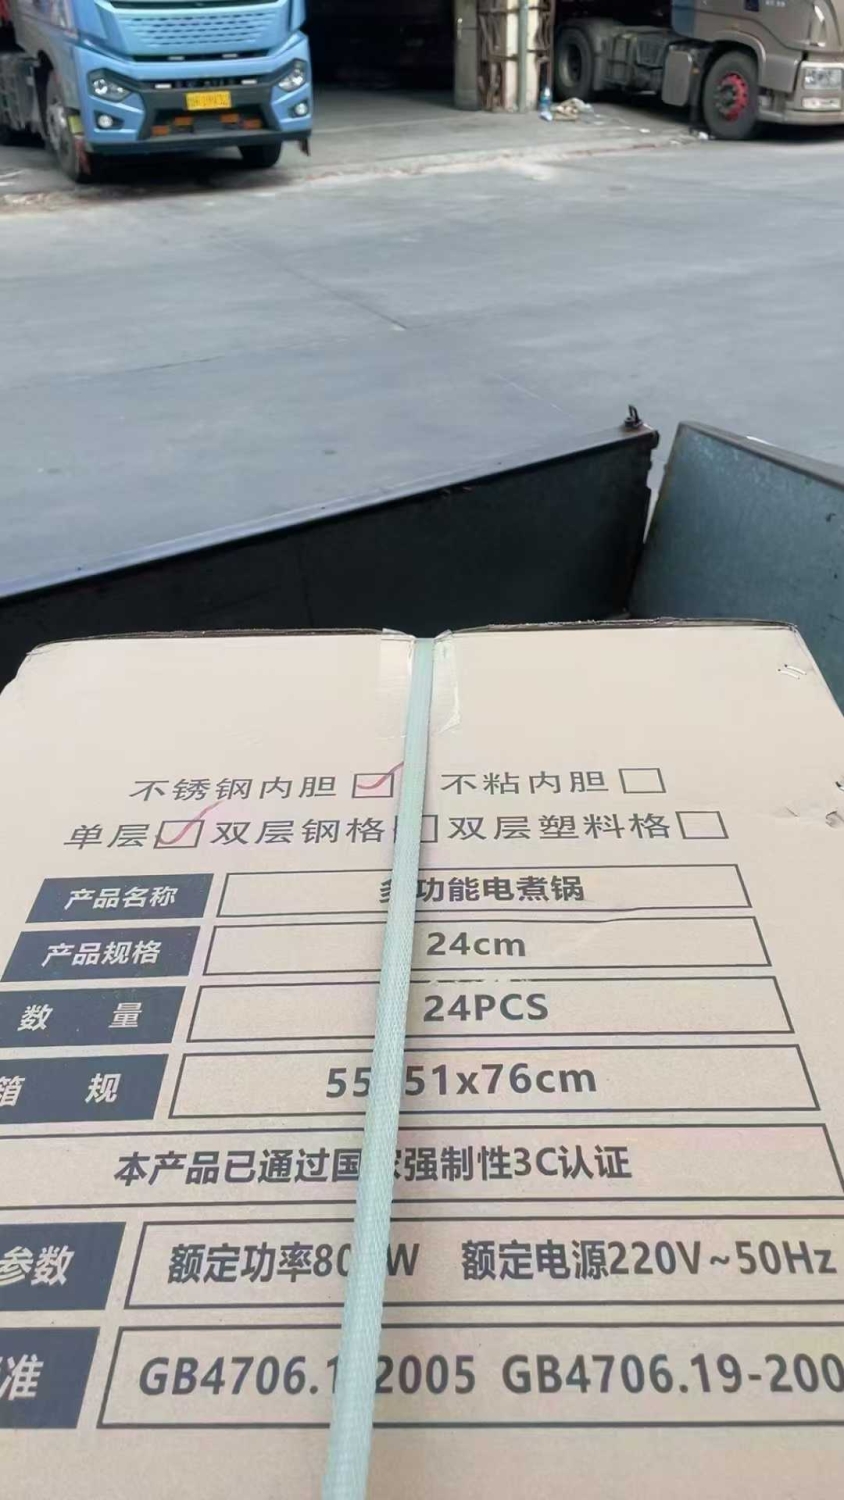 不锈钢内胆 不粘内胆
单层 双层钢格 双层塑料格
产品名称 多功能电煮锅
产品规格 24cm
数 量 24PCS
箱 规 55 51x76cm
本产品已通过国家强制性3C认证
参数 额定功率80 W 额定电源220V~50Hz
准 GB4706.1 2005 GB4706.19-200